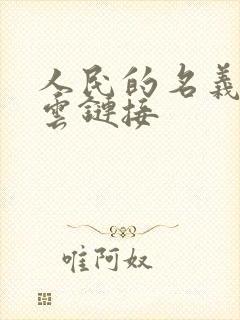 人民的名義
雲鏈接
唯阿奴